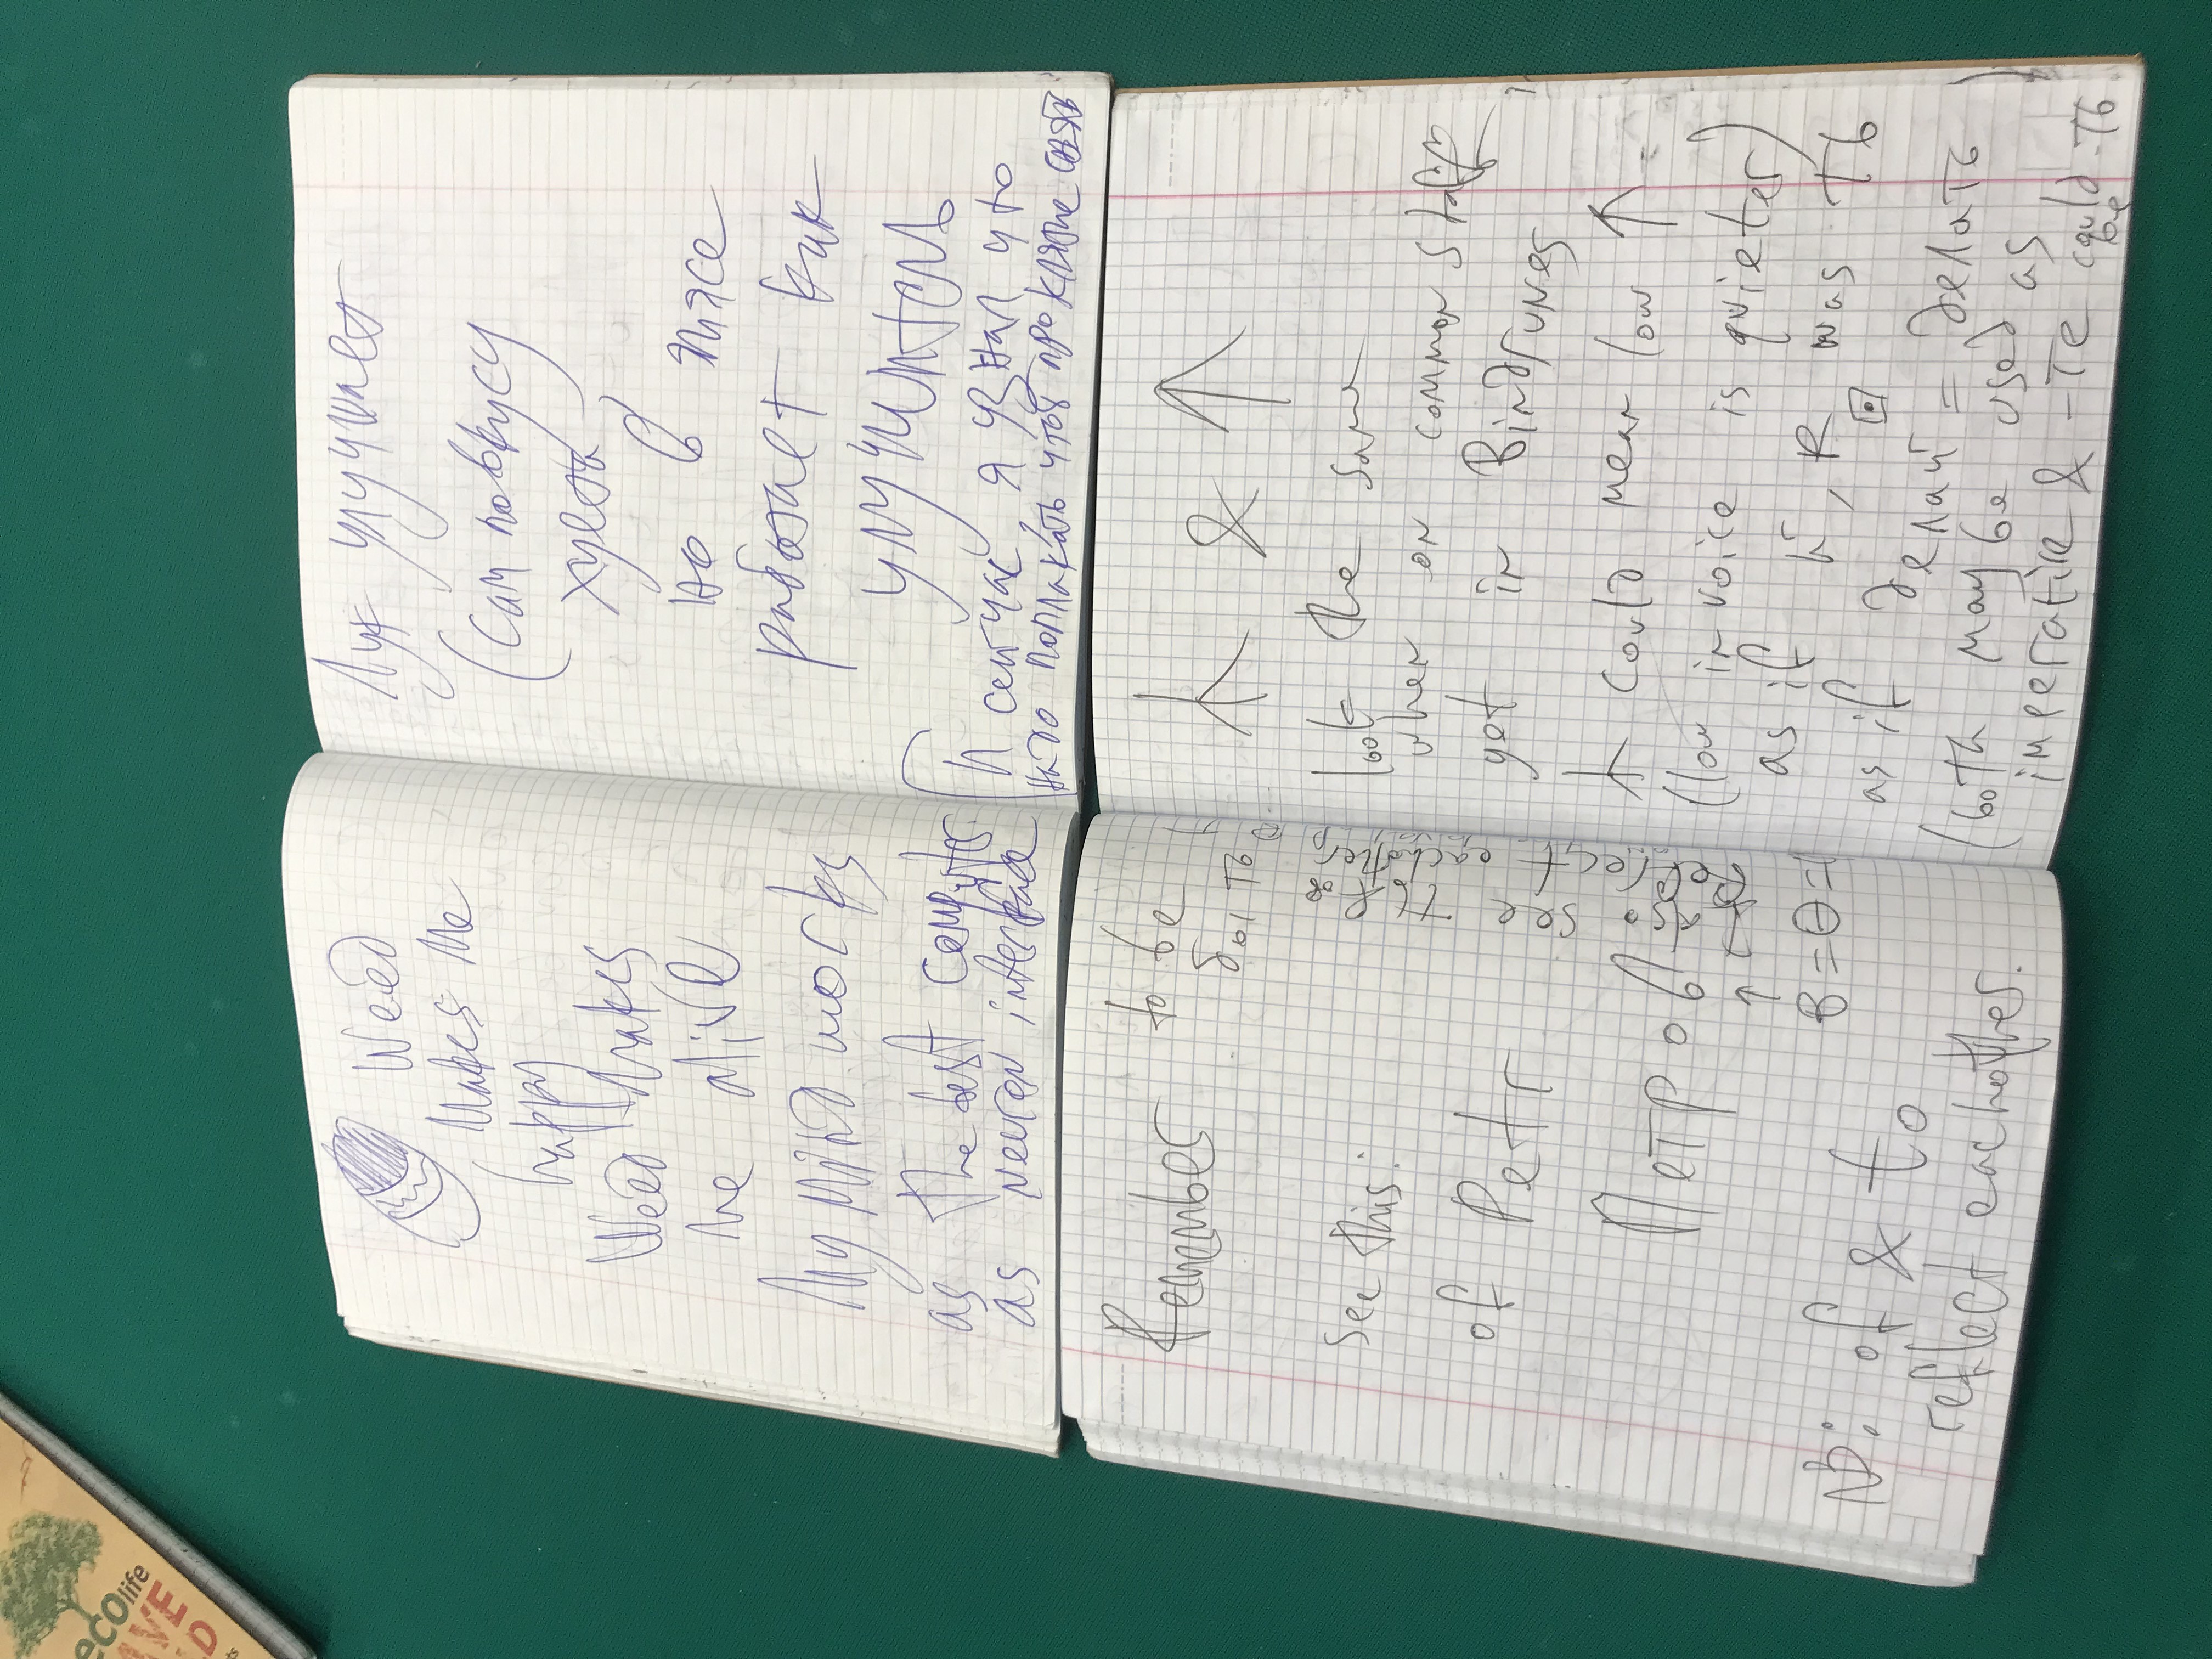 eco life
AVE
LD
ts
Weed
Makes Me
happy
Weed makes
me alive
My mind works
as the best computer
as neuron interface
Лук улучшает
(Сам по вкусу
хуета,
но в мясе
работает как
улучшитель
И сейчас, я узнал что
надо поплакать чтоб проклятие снять
Remember to be
быть
see this:
of Petr
Петров
↑
B = Θ =
NB: of & to
reflect eachother.
Also: see ть for
reflect eachother
ᛣ & ↑
look the same
when on common staff
yet in Bindrunes
ᛣ could mean low ↑
(low in voice is quieter)
as if й, R was ть
as if делай = делать
(both may be used as
imperative & -те could be -ть